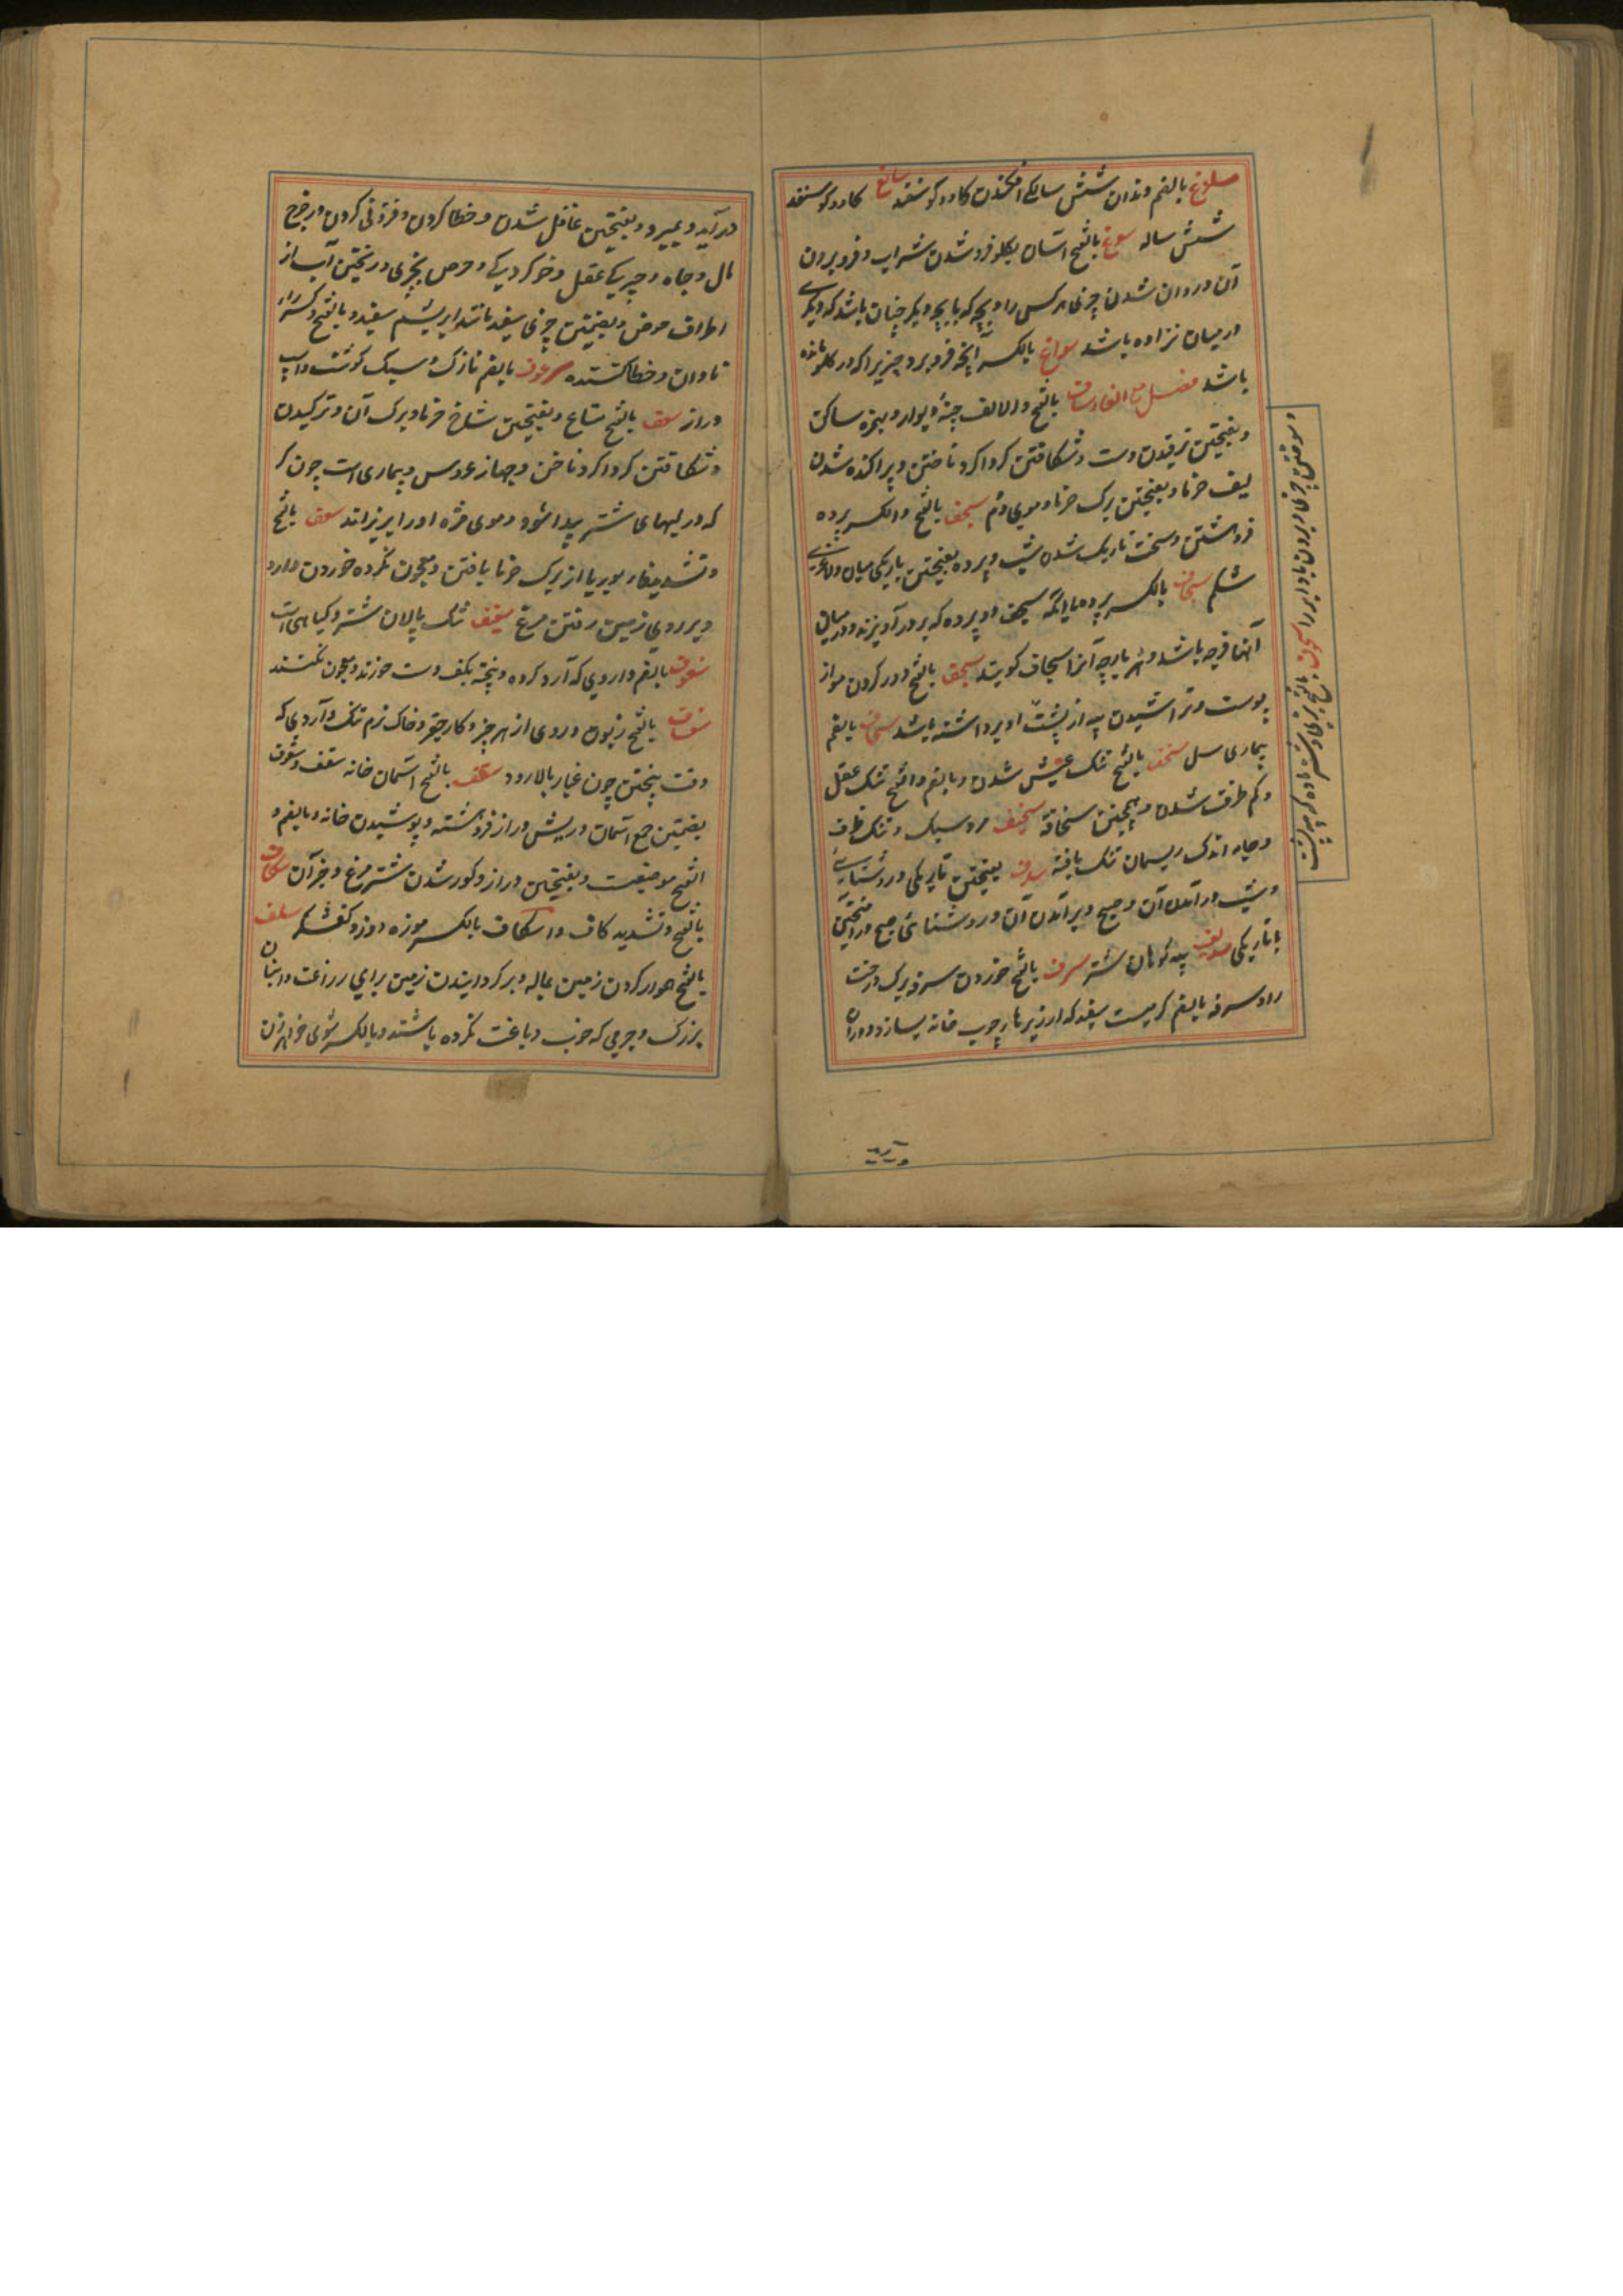 سلوغ بالضم دندان شش سالگی افکندن کاو و کوسفند سالغ کاو و کوسفند
شش ساله سوغ بالفتح آسان بگلو فرو شدن شراب و فرو بردن
آن و روان شدن چیزی بر کس را و بچه که با بچه دیگر چنان باشد که دیگری
در میان نزاده باشد سواغ بالکسر آنچه فرو برد چیزیرا که در کلو مانده
باشد فصل مع الفاء ساف بالفتح والالف چینه دیوار و بهمزه ساکن
و بفتحتین ترقیدن دست و شکافتن کرداکرد ناخن و پراکنده شدن
لیف خرما و بفتحتین برک خرما و موی دم سجف بالفتح والکسر پرده
فروهشتن و سخت تاریک شدن شب و پرده بفتحتین باریکی میان و لاغری
شکم سجاف بالکسر پرده یا آنکه سجف دو پرده که بر در آویزند و در میان
آنها فرجه باشد و هر پارچه آنرا سجاف کویند سحف بالفتح دور کردن مو از
پوست و تراشیدن پیه از پشت او برداشته باشد سحاف بالضم
بیماری سل سخف بالفتح تنک عیش شدن و بالضم والفتح تنک عقل
و کم ظرف شدن و همچنین سخافة سخیف مرد سبک و تنک ظرف
و جامه اندک ریسمان تنک بافته سدف بفتحتین تاریکی و روشنایی
و شب و در آمدن آن و صبح و بر آمدن آن و روشنائی صبح در آمیختن
با تاریکی سدیف پیه کوهان شتر سرف بالفتح خوردن سرفه برک درخت
را و سرفه بالضم کرمیست سفید که از ریزهای چوب خانه بسازد و در آن
در آید و بمیرد و بفتحتین غافل شدن و خطا کردن و فزونی کردن در خرج
مال و جاه و چیزی عقل و خو کردیکی و حرص بچیزی و ریختن آب از
اطراف حوض و بضمتین چیزی سفید مانند ابریشم سفید و بالفتح وکسر را
نادان و خطا کننده سرعوف بالضم نازک و سبک کوشت و اسپ
دراز سعف بالفتح متاع و بفتحتین شاخ خرما و برک آن و ترکیدن
و شکافتن کرداکرد ناخن و جهاز عروس و بیماری است چون کر
که در لبهای شتر پیدا شود و موی مژه او را بریزاند سف بالفتح
و تشدید فا بوریا از برک خرما بافتن و معجون نکرده خوردن دارو
و بر روی زمین رفتن مرغ سفیف تنک پالان شتر و کیاهی است
سفوف بالضم داروی که آرد کرده و پخته بکف دست خورند و معجون نکنند
سفساف بالفتح زبون و ردی از هر چیز و کار حقیر و خاک نرم تنک و آردی که
وقت پختن چون غبار بالا رود سقف بالفتح آسمان خانه سقف و سقوف
بضمتین جمع آسمان و ریش دراز فروهشته و پوشیدن خانه و بالضم و
الفتح موضعیست و بفتحتین دراز و کوژ شدن شتر مرغ و جز آن سکاف
بالفتح و تشدید کاف و اسکاف بالکسر موزه دوز و کفشگر سلف
بالفتح هموار کردن زمین بماله و بر کردانیدن زمین برای زراعت و انبان
بزرک و چرمی که خوب دباغت نکرده باشند و بالکسر شوی خواهر زن